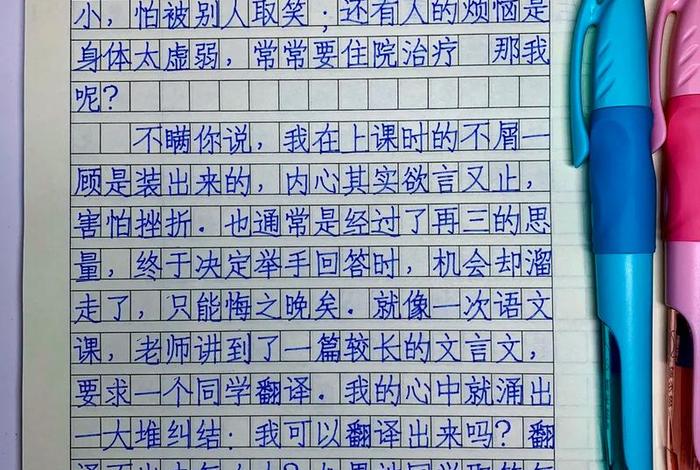 小，怕被别人取笑；还有人的烦恼是
身体太虚弱，常常要住院治疗 那我
呢？
不瞒你说，我在上课时的不屑一
顾是装出来的，内心其实欲言又止，
害怕挫折．也通常是经过了再三的思
量，终于决定举手回答时，机会却溜
走了，只能悔之晚矣．就像一次语文
课，老师讲到了一篇较长的文言文，
要求一个同学翻译．我的心中就涌出
一大堆纠结：我可以翻译出来吗？翻